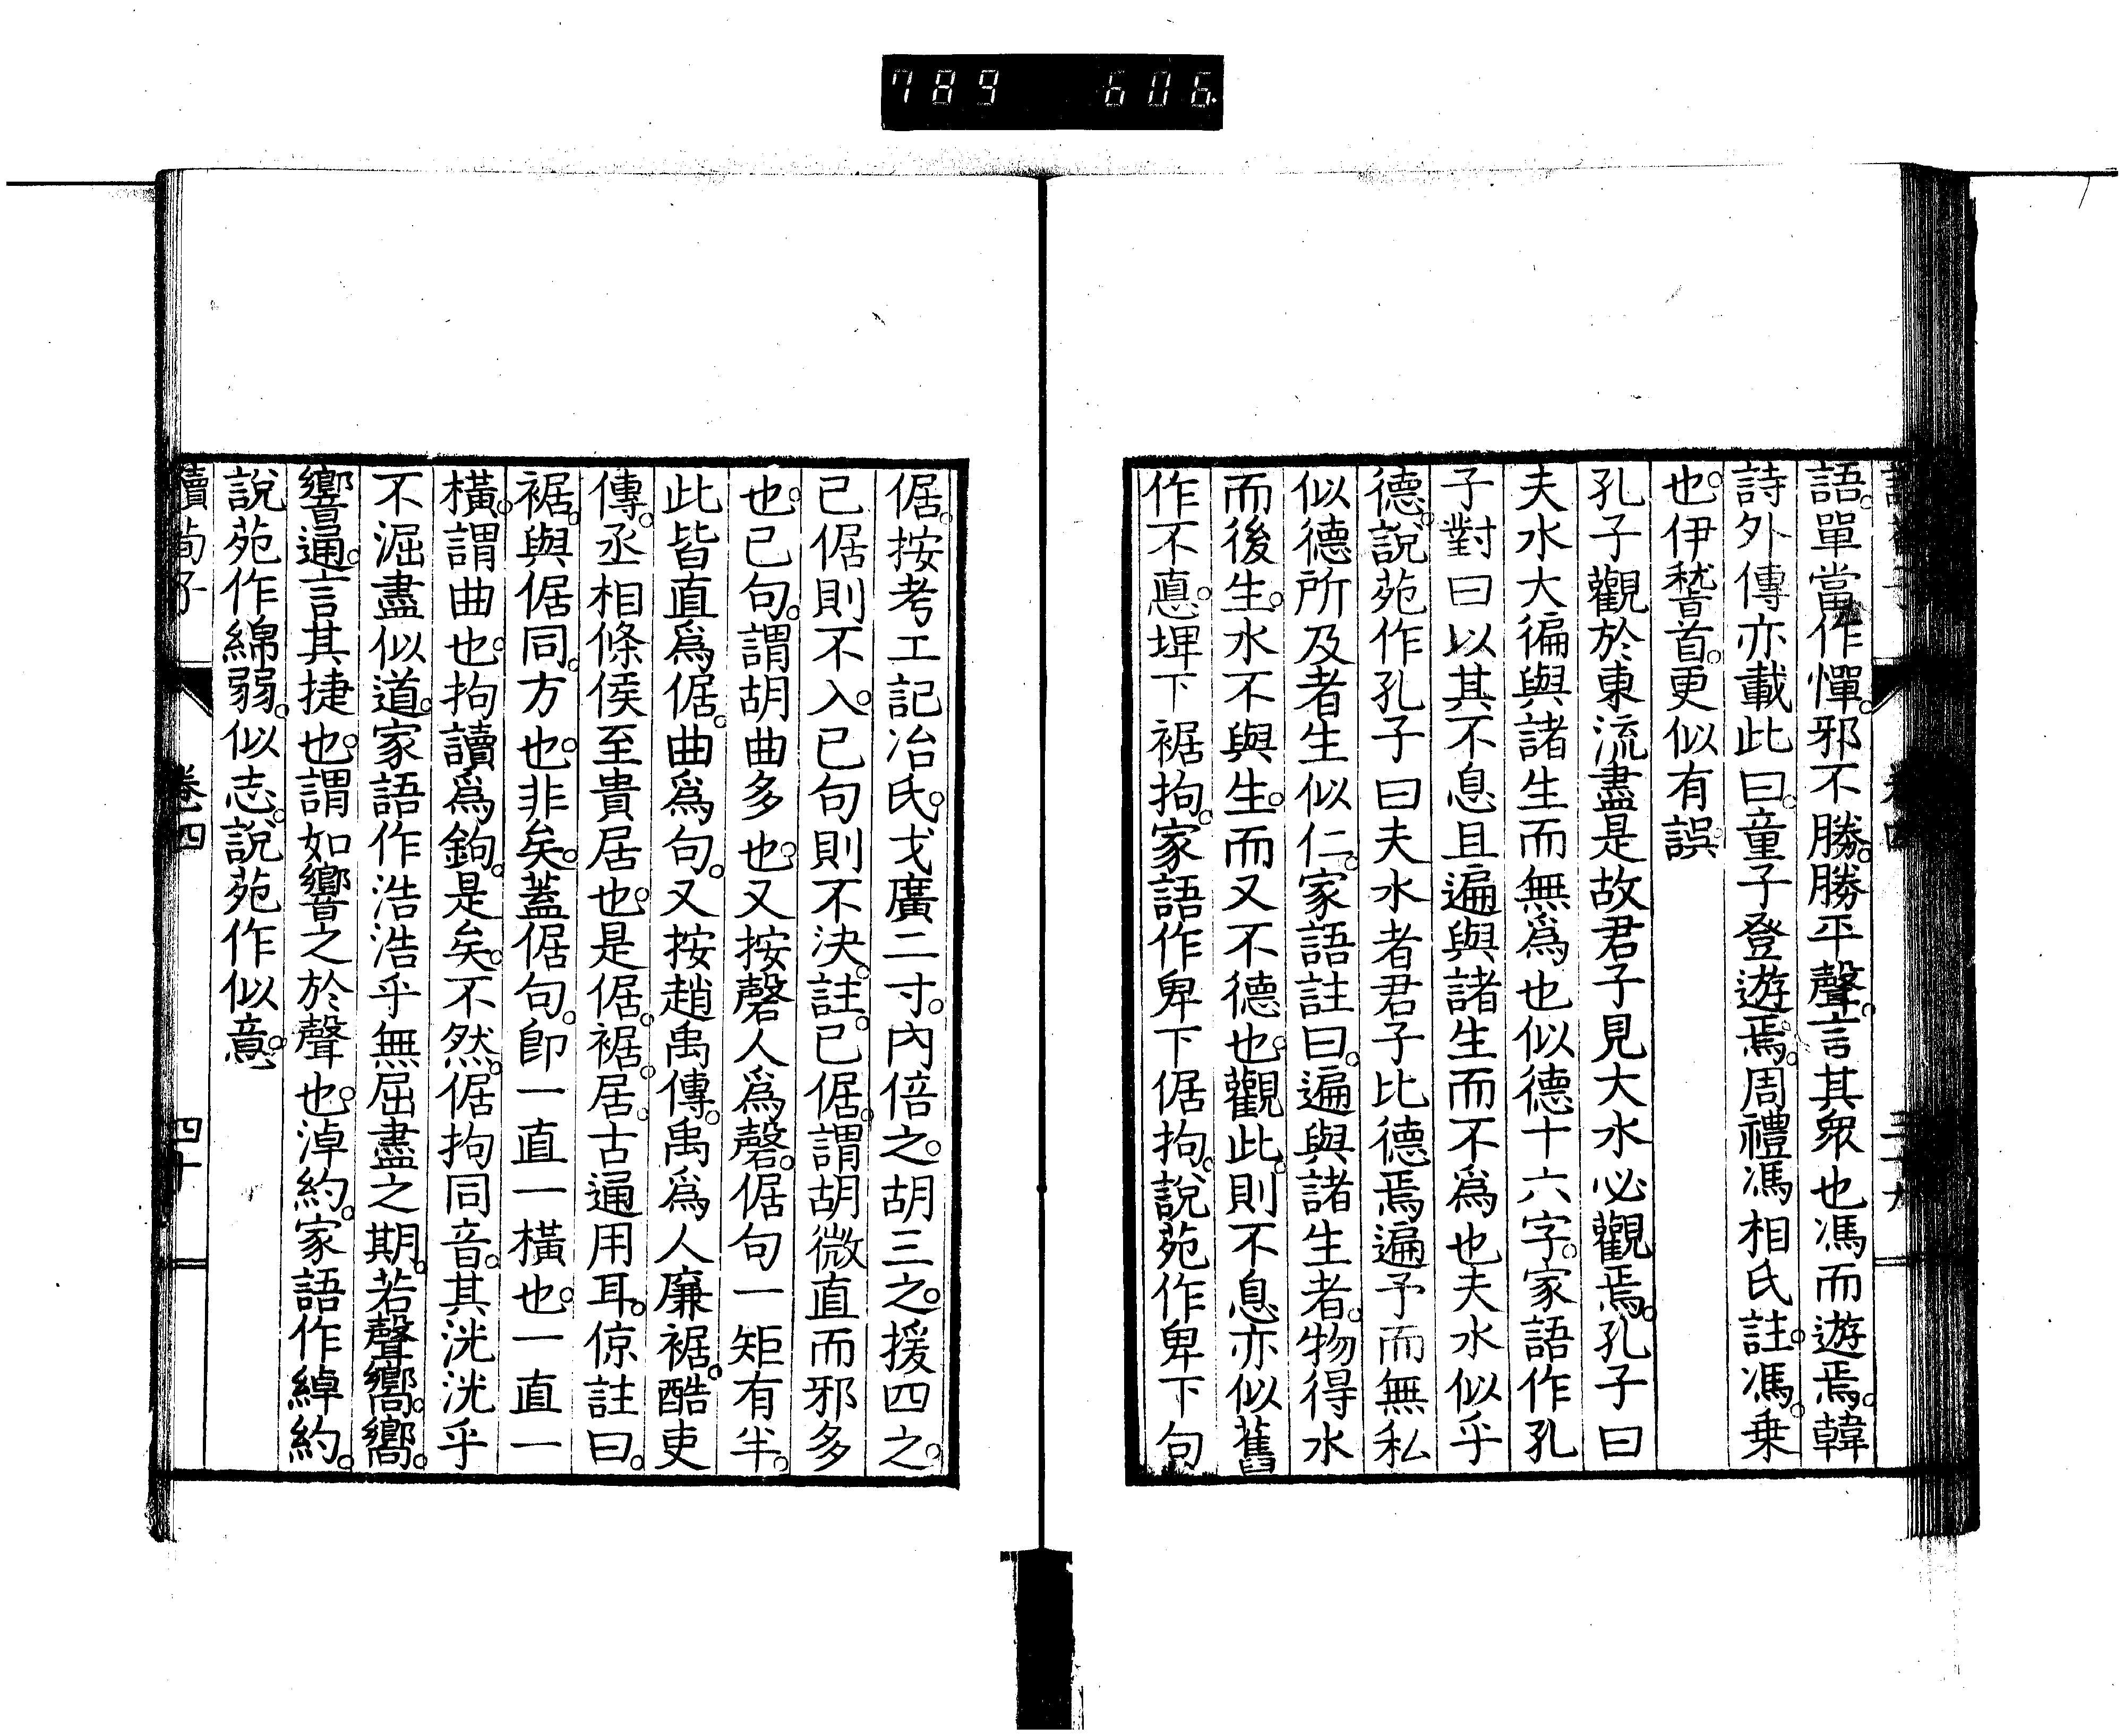 789 606
語。單當作憚。邪不勝。勝平聲。言其衆也馮而遊焉。韓
詩外傳亦載此曰。童子登遊焉。周禮馮相氏註。馮。乗
也。伊嵆首。更似有誤
孔子觀於東流盡是故君子見大水必觀焉。孔子曰
夫水大徧與諸生而無爲也似德十六字。家語作孔
子對曰以其不息且遍與諸生而不爲也夫水似乎
德。說苑作孔子曰夫水者君子比德焉遍予而無私
似德所及者生似仁。家語註曰。遍與諸生者。物得水
而後生。水不與生。而又不德也。觀此。則不息亦似舊
作不悳。埤下裾拘。家語作卑下倨拘。說苑作卑下句
倨。按考工記冶氏。戈廣二寸。內倍之。胡三之。援四之。
已倨則不入。已句則不決。註。已倨。謂胡微直而邪多
也。已句。謂胡曲多也。又按磬人爲磬。倨句一矩有半。
此皆直爲倨。曲爲句。又按趙禹傳。禹爲人廉裾。酷吏
傳。丞相條侯至貴居也。是倨。裾。居。古通用耳。倞註曰。
裾。與倨同。方也。非矣。蓋倨句。卽一直一橫也。一直一
橫。謂曲也。拘讀爲鉤。是矣。不然。倨拘同音。其洸洸乎
不淈盡似道。家語作浩浩乎無屈盡之期。若聲嚮。嚮。
響通。言其捷也。謂如響之於聲也。淖約。家語作綽約。
說苑作綿弱。似志。說苑作似意。
讀荀子
卷四
四十